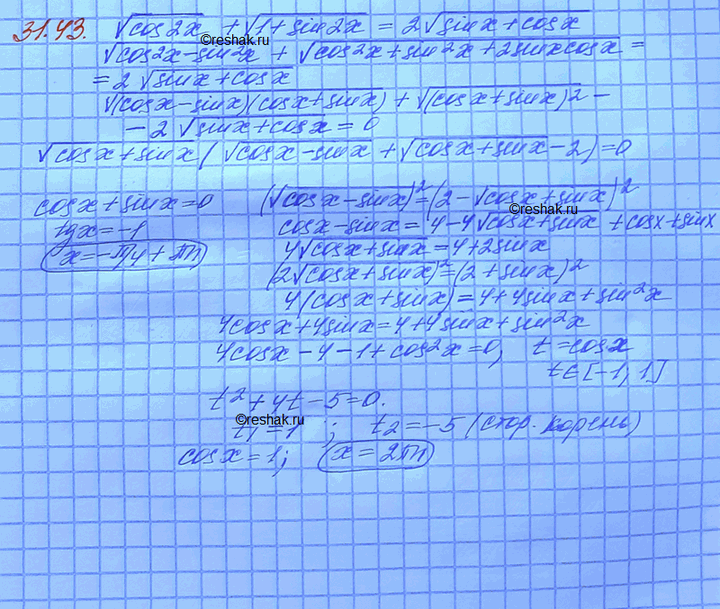 31.43. √cos2x + √1+sin2x = 2√sinx+cosx
©reshak.ru
√cos²x-sin²x + √cos²x+sin²x+2sinxcosx =
= 2√sinx+cosx
√(cosx-sinx)(cosx+sinx) + √(cosx+sinx)² -
- 2√sinx+cosx = 0
√cosx+sinx (√cosx-sinx + √cosx+sinx - 2) = 0
cosx+sinx=0
tgx=-1
x=-π/4+πn
(√cosx-sinx)²=(2-√cosx+sinx)²
©reshak.ru
cosx-sinx=4-4√cosx+sinx+cosx+sinx
4√cosx+sinx=4+2sinx
(2√cosx+sinx)²=(2+sinx)²
4(cosx+sinx)=4+4sinx+sin²x
4cosx+4sinx=4+4sinx+sin²x
4cosx-4-1+cos²x=0, t=cosx
t∈[-1,1]
t²+4t-5=0.
©reshak.ru
t1=1 ; t2=-5 (стор. корень)
cosx=1; x=2πn